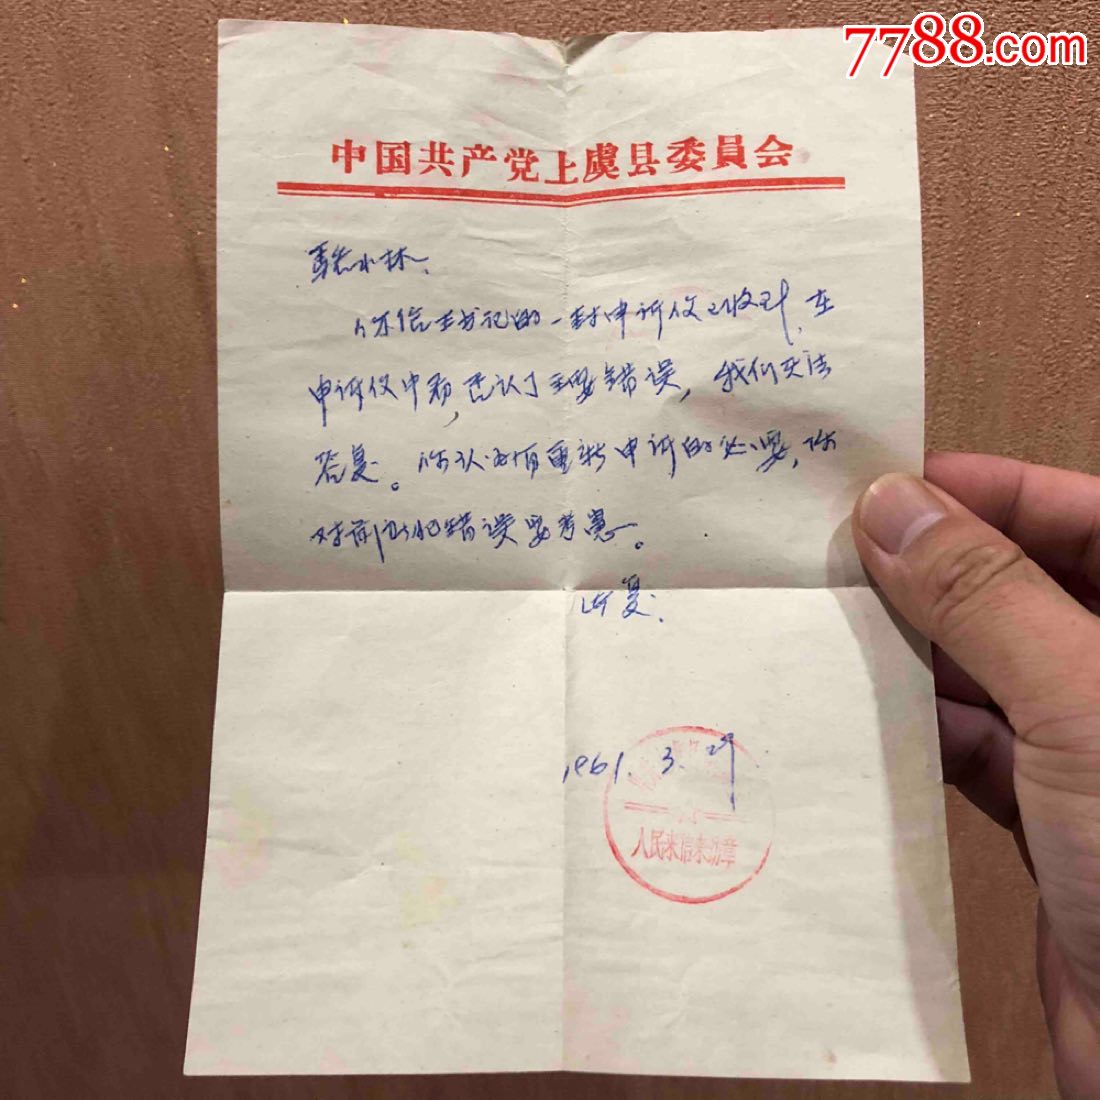 7788.com
中国共产党上虞县委員会
小林、
你给王书记的一封申诉仅已收到，在
申诉仅中，否认了主要错误，我们无法
答复。你认为有重新申诉的必要，你
对前所犯错误要考虑。
此复、
1961.3.29
人民来信来访章